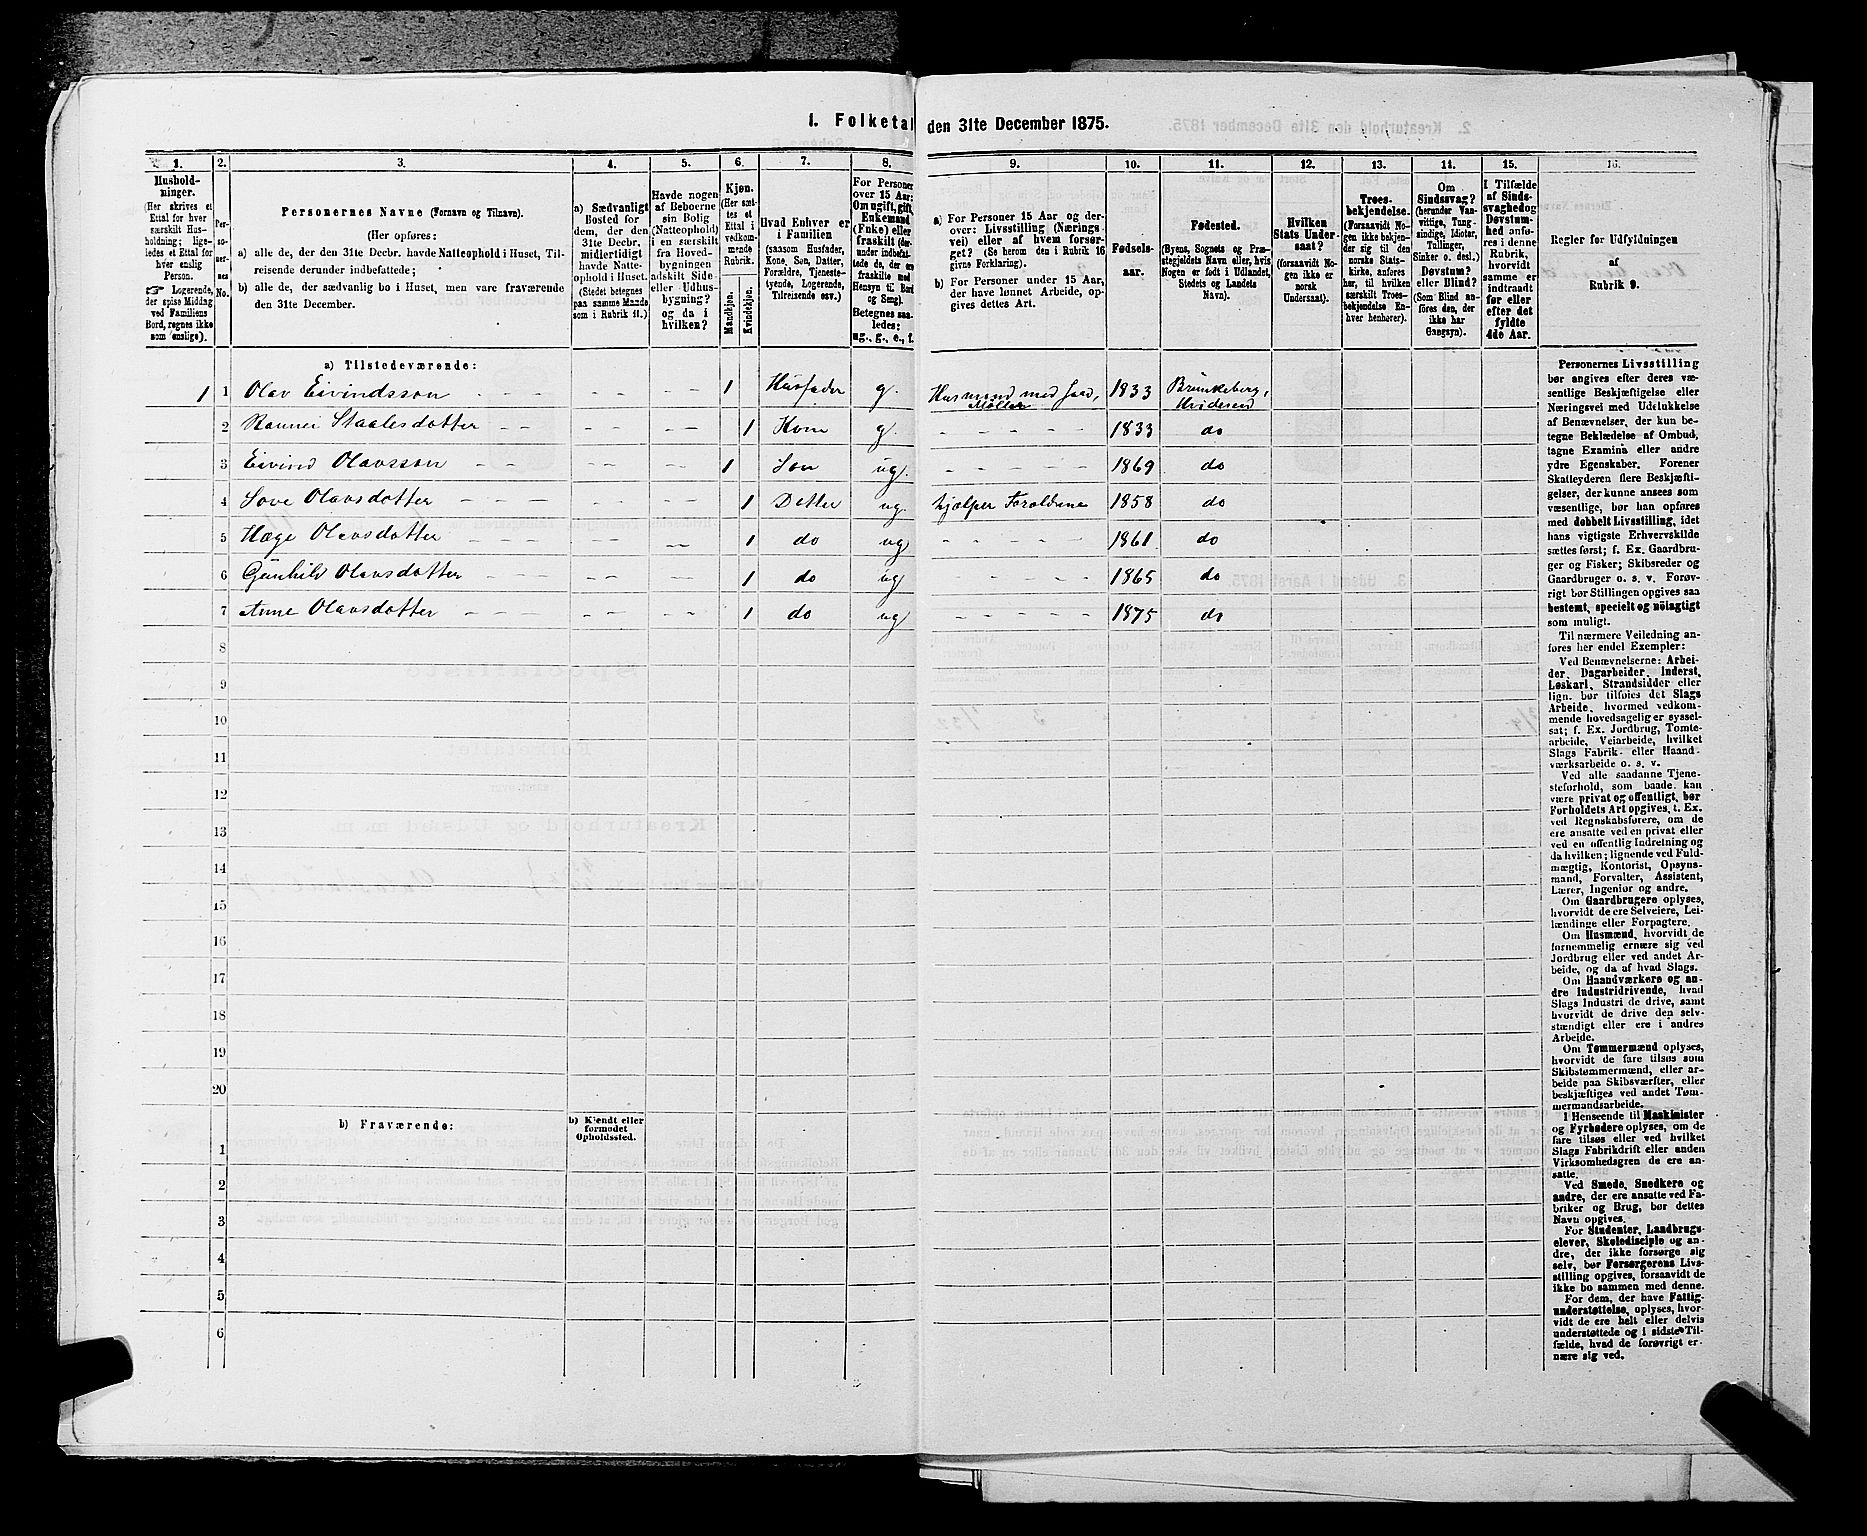 1. Folketal den 31te December 1875.
1. 2. 3. 4. 5. 6. 7. 8. 9. 10. 11. 12. 13. 14. 15. 16.
Hushold-
ninger.
(Her skrives et
Ettal for hver
særskilt Hus-
holdning; lige-
ledes et Ettal for
hver enslig
Person.
☞ Logerende,
der spise Middag
ved Familiens
Bord, regnes ikke
som enslige).
Per-
so-
ner-
nes
No.
Personernes Navne (Fornavn og Tilnavn).
(Her opføres:
a) alle de, der den 31te Decbr. havde Natteophold i Huset, Til-
reisende derunder indbefattede;
b) alle de, der sædvanlig bo i Huset, men vare fraværende
den 31te December.
a) Sædvanligt
Bosted for
dem, der den
31te Decbr.
midlertidigt
havde Natte-
ophold i Huset.
(Stedet betegnes
paa samme Maade
som i Rubrik 11.)
Havde nogen
af Beboerne
sin Bolig
(Natteophold)
i en særskilt
fra Hoved-
bygningen
adskilt Side
eller Udhus-
bygning?
og da i
hvilken?
Kjøn.
(Her sæt-
tes et
Ettal i
vedkom-
mende
Rubrik.
Mandkjøn.
Kvindekjøn.
Hvad Enhver er
i Familien
(saasom Husfader,
Kone, Søn, Datter,
Forældre, Tjeneste-
tyende, Logerende,
Tilreisende osv.)
For Personer
over 15 Aar:
Om ugift, gift,
Enkemand
(Enke) eller
fraskilt (der-
under indbefat-
tede de, der ere
fraskilte med
Hensyn til Bord
og Seng).
Betegnes saa-
ledes:
ug., g., e., f.
a) For Personer 15 Aar og der-
over: Livsstilling (Nærings-
vei) eller af hvem forsør-
get? (Se herom den i Rubrik 16
givne Forklaring).
b) For Personer under 15 Aar,
der have lønnet Arbeide, op-
gives dettes Art.
Fødsels-
aar.
Fødested.
(Byens, Sognets og Præ-
stegjeldets Navn eller, hvis
Nogen er født i Udlandet,
Stedets og Landets
Navn).
Hvilken
Stats Under-
saat?
(forsaavidt No-
gen ikke er
norsk
Undersaat).
Troes-
bekjendelse.
(Forsaavidt No-
gen ikke bekjen-
der sig til den
norske Stats-
kirke, anføres
her, til hvilken
særskilt Troes-
bekjendelse En-
hver henhører).
Om
Sindssvag?
(herunder Van-
vittige, Tung-
sindige, Idioter,
Tullinger,
Sinker o. desl.)
Døvstum?
eller Blind?
(Som Blind an-
føres den, der
ikke har
Gangsyn).
I Tilfælde
af Sinds-
svaghed og
Døvstum-
hed anfø-
res i denne
Rubrik,
hvorvidt
samme er
indtraadt
før eller
efter det
fyldte
4de Aar.
Regler for Udfyldningen
af
Rubrik 9.
a) Tilstedeværende:
1 1 Olav Eivindsson - - - - - - - 1 Husfader g. Husmand med Jord, Møller 1833 Brunkeberg, Hvideseid
2 Rannei Staalesdotter - - - - - - 1 Kone g. - - - - - 1833 do
3 Eivind Olavsson - - - - - - 1 Søn ug. - - - - - 1869 do
4 Love Olavsdotter - - - - - - - 1 Detter ug. hjælper Forældrene 1858 do
5 Hæge Olavsdotter - - - - - - - 1 do ug - - - - - 1861 do
6 Gunhild Olavsdotter - - - - - - - 1 do ug - - - - - 1865 do
7 Anne Olavsdotter - - - - - - - 1 do ug - - - - - 1875 do
8
9
10
11
12
13
14
15
16
17
18
19
20
b) Fraværende:
b) Kjendt eller
formodet
Opholdssted.
1
2
3
4
5
6
Personernes Livsstilling
bør angives efter deres væ-
sentlige Beskjæftigelse eller
Næringsvei med Udelukkelse
af Benævnelser, der kun be-
tegne Beklædelse af Ombud,
tagne Examina eller andre
ydre Egenskaber. Forener
Skatteyderen flere Beskjæfti-
gelser, der kunne ansees som
væsentlige, bør han opføres
med dobbelt Livsstilling, idet
hans vigtigste Erhvervskilde
sættes først; f. Ex. Gaardbru-
ger og Fisker; Skibsreder og
Gaardbruger o. s. v. Forøv-
rigt bør Stillingen opgives saa
bestemt, specielt og nöiagtigt
som muligt.
Til nærmere Veiledning an-
føres her endel Exempler:
Ved Benævnelserne: Arbei-
der, Dagarbeider, Inderst,
Løskarl, Strandsidder eller
lign. bør tilføies det Slags
Arbeide, hvormed vedkom-
mende hovedsagelig er syssel-
sat; f. Ex. Jordbrug, Tomte-
arbeide, Veiarbeide, hvilket
Slags Fabrik- eller Haand-
værksarbeide o. s. v.
Ved alle saadanne Tjene-
steforhold, som baade kan
være privat og offentligt, bør
Forholdets Art opgives, t. Ex.
ved Regnskabsførere, om de
ere ansatte ved en privat eller
ved en offentlig Indretning og
da hvilken; lignende ved Fuld-
mægtig, Kontorist, Opsyns-
mand, Forvalter, Assistent,
Lærer, Ingeniør og andre.
Om Gaardbrugere oplyses,
hvorvidt de ere Selveiere, Lei-
lændinge eller Forpagtere.
Om Husmænd, hvorvidt de
fornemmelig ernære sig ved
Jordbrug eller ved andet Ar-
beide, og da af hvad Slags.
Om Haandværkere og an-
dre Industridrivende, hvad
Slags Industri de drive, samt
hvorvidt de drive den selv-
stændigt eller ere i andres
Arbeide.
Om Tømmermænd oplyses,
hvorvidt de fare tilsøs som
Skibstømmermænd, eller ar-
beide paa Skibsværfter, eller
beskjæftiges ved andet Tøm-
mermandsarbeide.
I Henseende til Maskinister
og Fyrbødere oplyses, om de
fare tilsøs eller ved hvilket
Slags Fabrikdrift eller anden
Virksomhedsgren de ere an-
satte.
Ved Smede, Snedkere og
andre, der ere ansatte ved Fa-
briker og Brug, bør dettes
Navn opgives.
For Studenter, Landbrugs-
elever, Skoledisciple og an-
dre, der ikke forsørge sig
selv, bør Forsørgerens Livs-
stilling opgives, forsaavidt de
ikke bo sammen med denne.
For dem, der have Fattig-
understøttelse, oplyses, hvor-
vidt de ere helt eller delvis
understøttede og i sidste Til-
fælde, hvad de forøvrigt er-
nære sig ved.